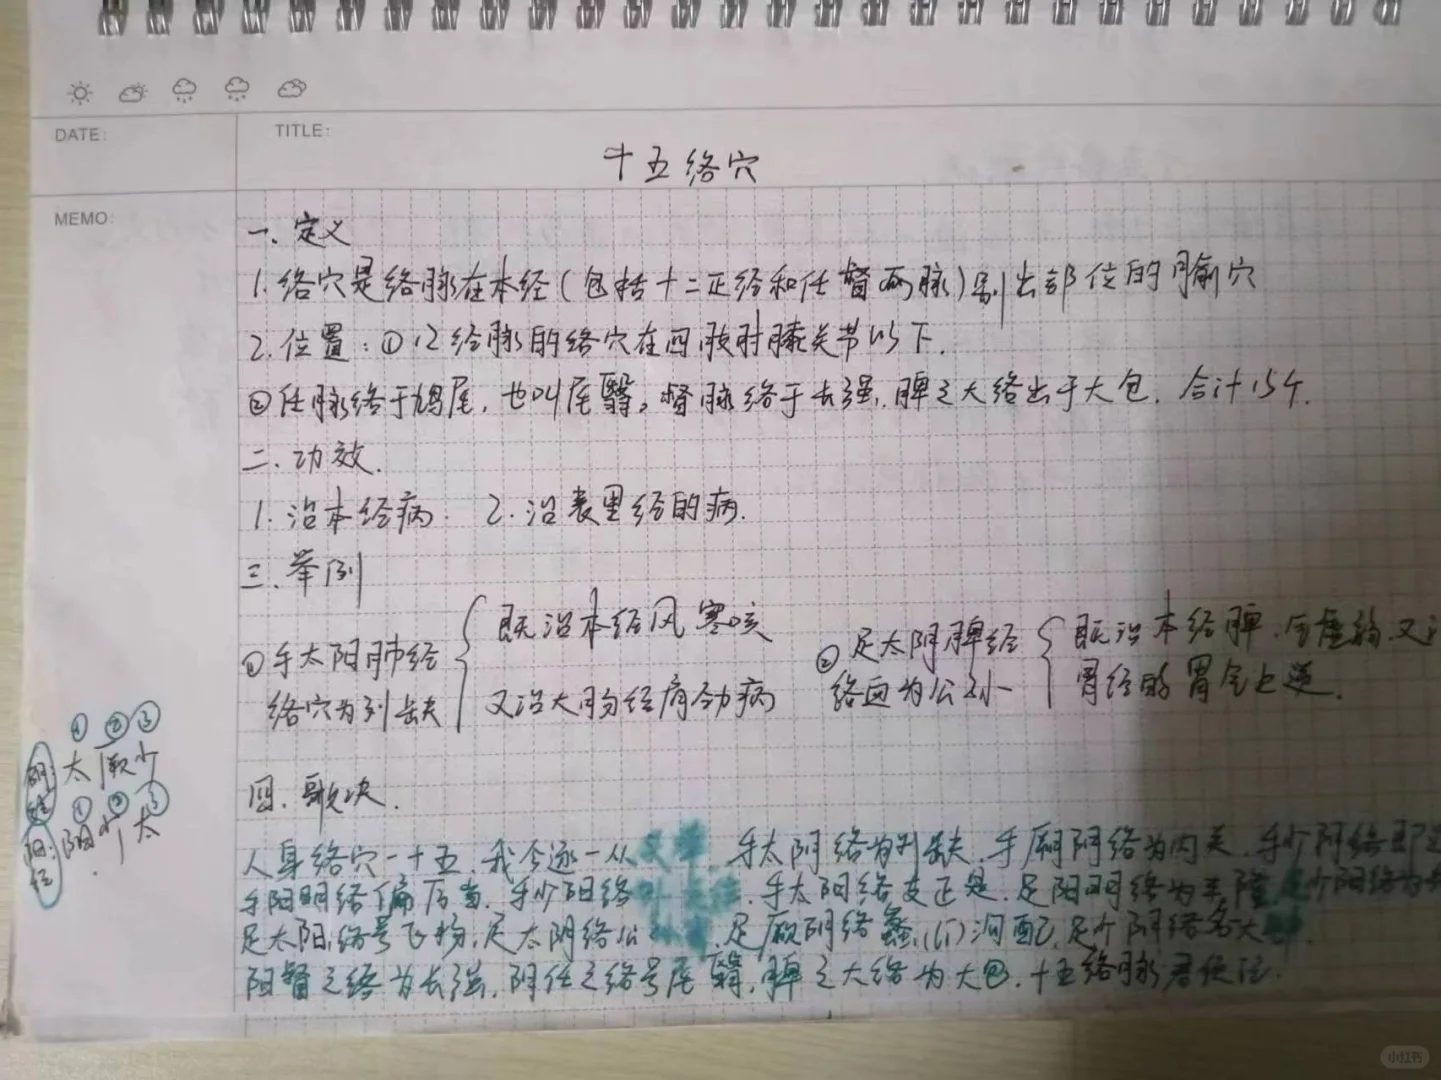 DATE:
TITLE:
十五络穴
MEMO:
一、定义
1. 络穴是络脉在本经(包括十二正经和任督两脉)别出部位的腧穴
2. 位置:①12经脉的络穴在四肢肘膝关节以下.
②任脉络于鸠尾,也叫尾翳。督脉络于长强,脾之大络出于大包. 合计15个.
二、功效.
1. 治本经病. 2. 治表里经的病.
三、举例
①手太阳肺经 既治本经风寒咳
络穴为列缺 又治大肠经肩劲病
②足太阴脾经 既治本经脾 虚弱,又
络血为公孙 胃经的胃气上逆.
① ② ③
阴经 太 厥 少
① ② ③
阳经 阳 少 太
四、歌决.
人身络穴一十五,我今逐一从 手太阴络为列缺,手厥阴络为内关,手少阴络即
手阳明络偏历当,手少阳络外 手太阳络支正是,足阳明络为丰隆,足少阳络为
足太阳络号飞扬,足太阴络公 足厥阴络蠡(li)沟配,足少阴络名大
阳督之络为长强,阴任之络号尾翳,脾之大络为大包,十五络脉君便记.
小红书